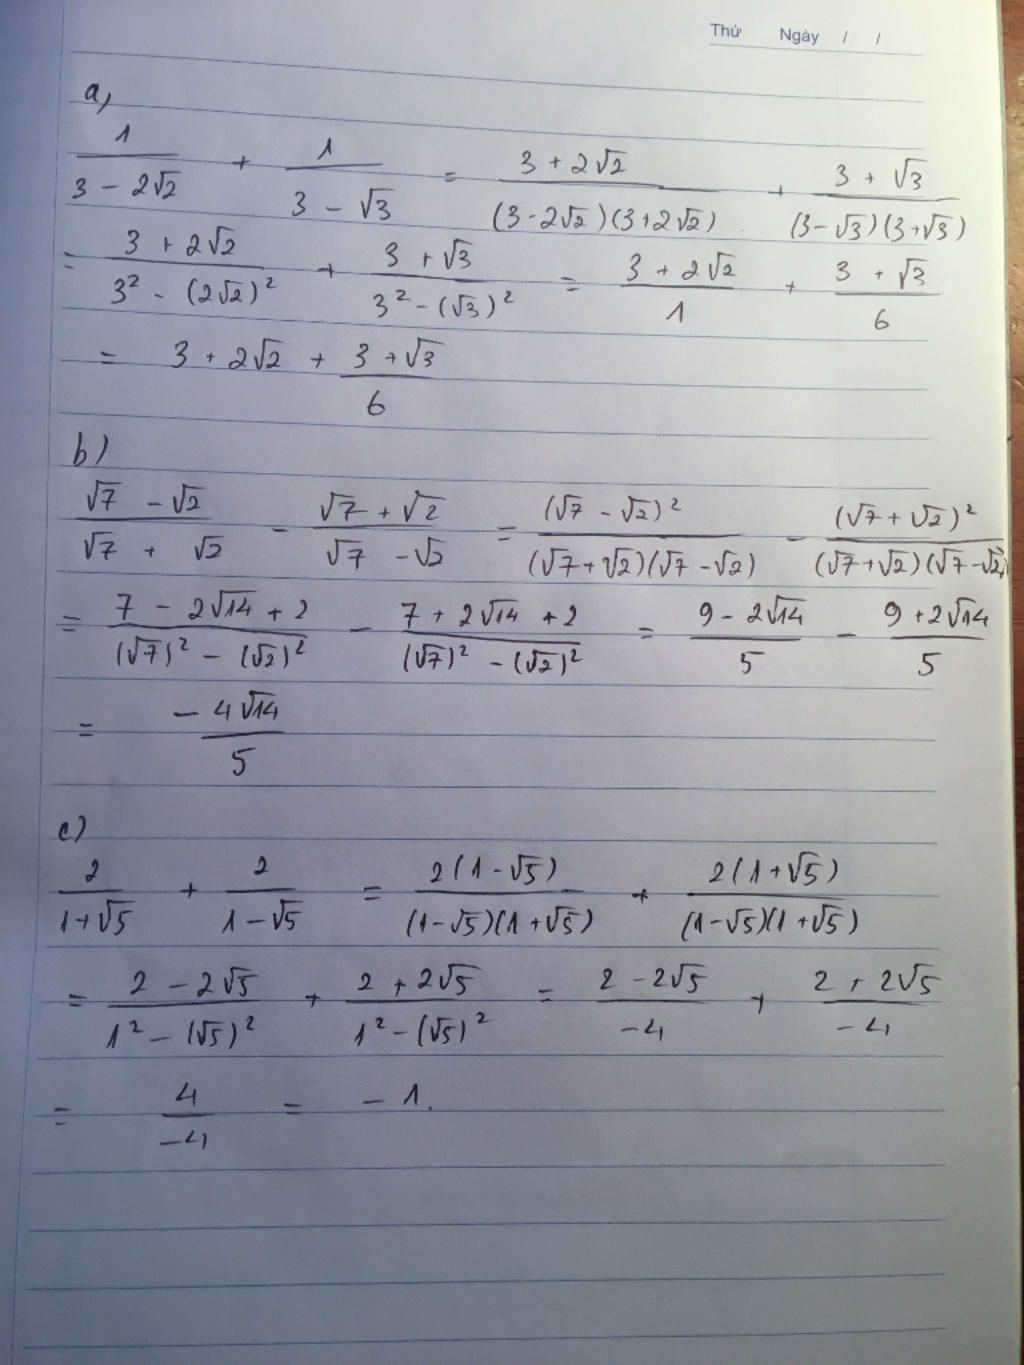 Thứ Ngày / /
a,
1/(3 - 2√2) + 1/(3 - √3) = (3 + 2√2)/((3 - 2√2)(3 + 2√2)) + (3 + √3)/((3 - √3)(3 + √3))
= (3 + 2√2)/(3² - (2√2)²) + (3 + √3)/(3² - (√3)²) = (3 + 2√2)/1 + (3 + √3)/6
= 3 + 2√2 + (3 + √3)/6
b)
(√7 - √2)/(√7 + √2) - (√7 + √2)/(√7 - √2) = (√7 - √2)²/((√7 + √2)(√7 - √2)) - (√7 + √2)²/((√7 + √2)(√7 - √2))
= (7 - 2√14 + 2)/((√7)² - (√2)²) - (7 + 2√14 + 2)/((√7)² - (√2)²) = (9 - 2√14)/5 - (9 + 2√14)/5
= (-4√14)/5
c)
2/(1 + √5) + 2/(1 - √5) = 2(1 - √5)/((1 - √5)(1 + √5)) + 2(1 + √5)/((1 - √5)(1 + √5))
= (2 - 2√5)/(1² - (√5)²) + (2 + 2√5)/(1² - (√5)²) = (2 - 2√5)/(-4) + (2 + 2√5)/(-4)
= 4/(-4) = -1.